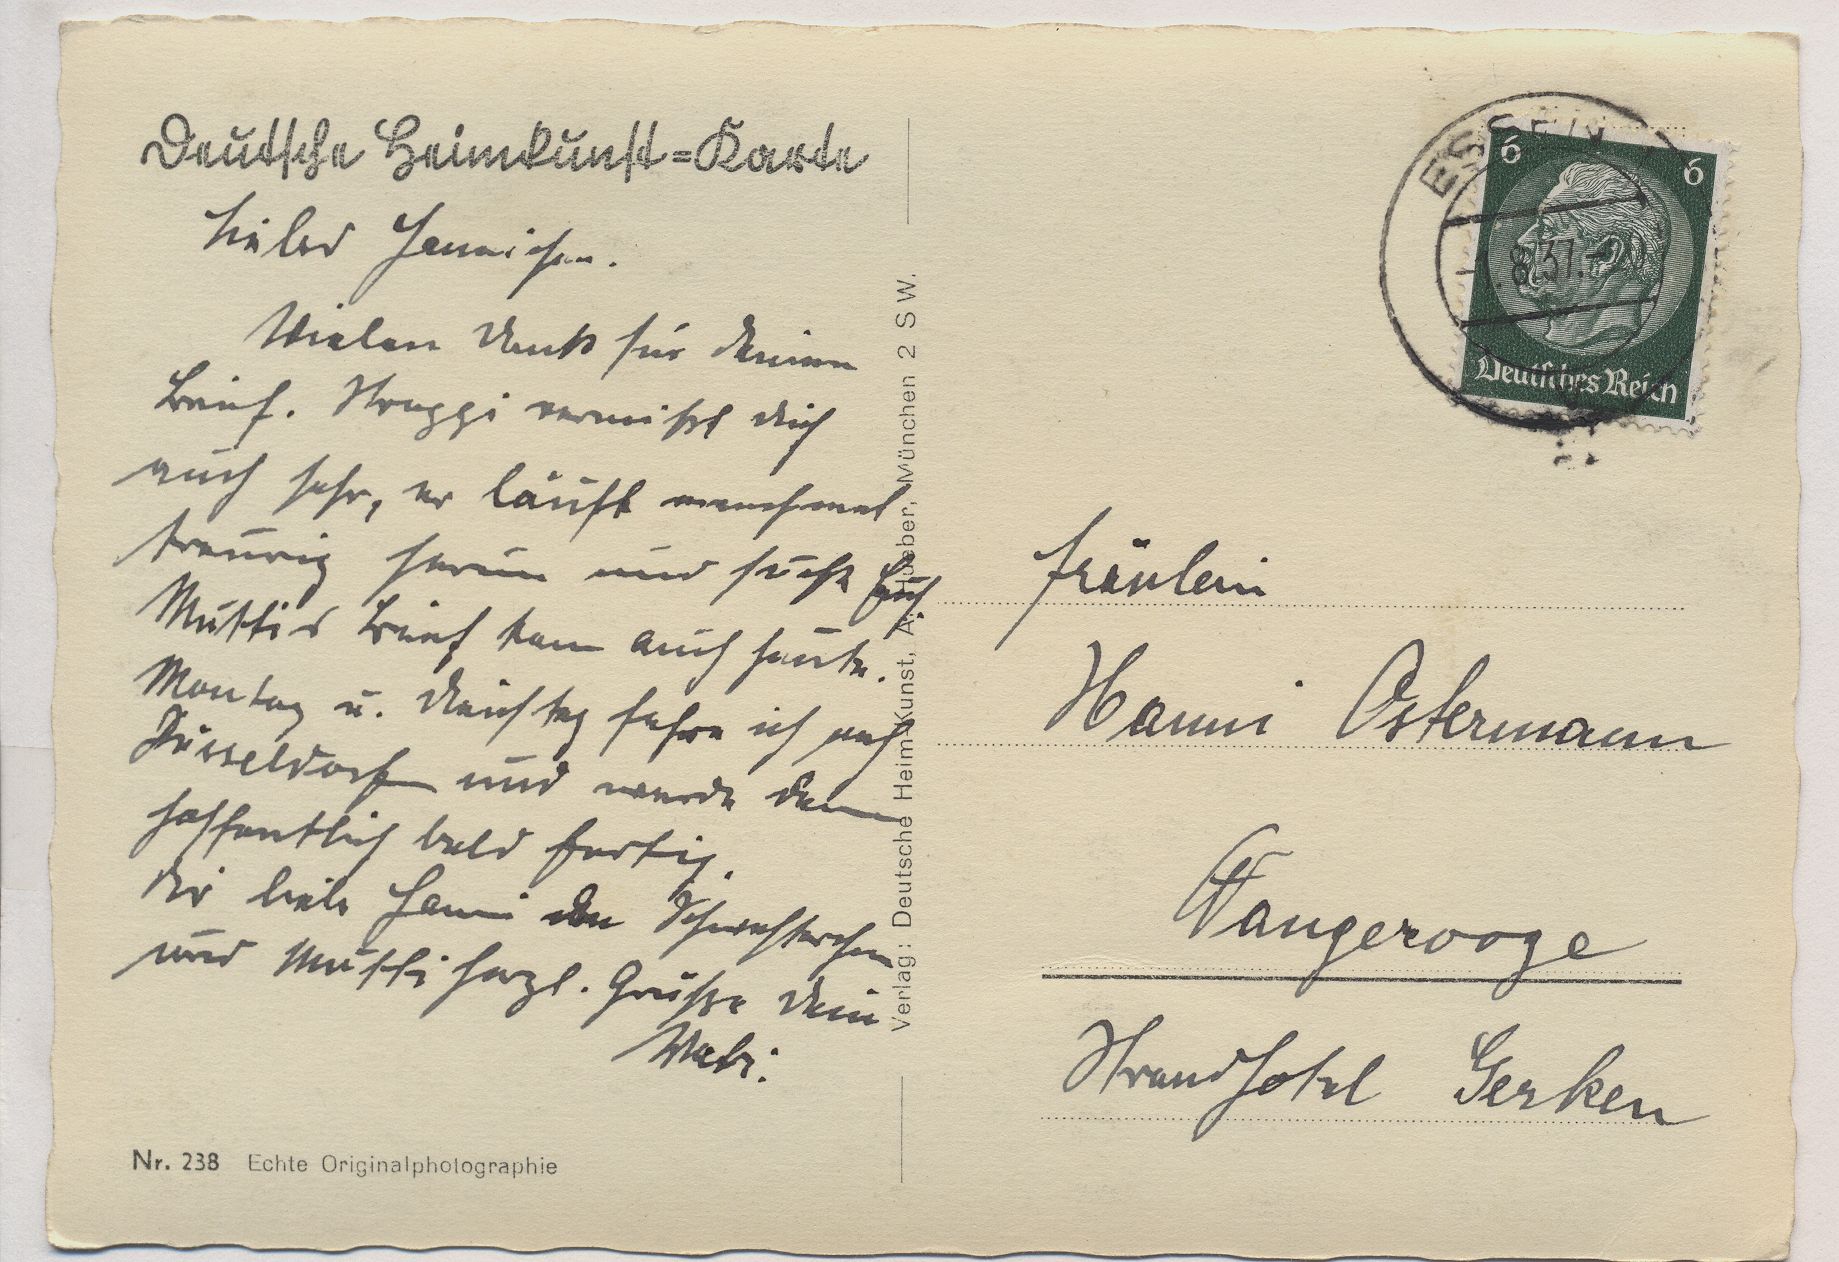 Deutsche Heimkunst=Karte
Liebes Hannichen.
Vielen Dank für Deinen
Brief. Struppi vermißt Dich
auch sehr, er läuft manchmal
traurig herum und sucht Euch.
Muttis Brief kam auch heute.
Montag u. Dienstag fahre ich nach
Düsseldorf und werde dann
hoffentlich bald fertig.
Dir liebe Hanni den Schwesterchen
und Mutti herzl. Grüße Dein
Nr. 238 Echte Originalphotographie
Verlag: Deutsche Heim-Kunst, München 2 SW.
ESSEN
8.37.
6 6
Deutsches Reich
Fräulein
Hanni Ostermann
Wangerooge
Strandhotel Gerken